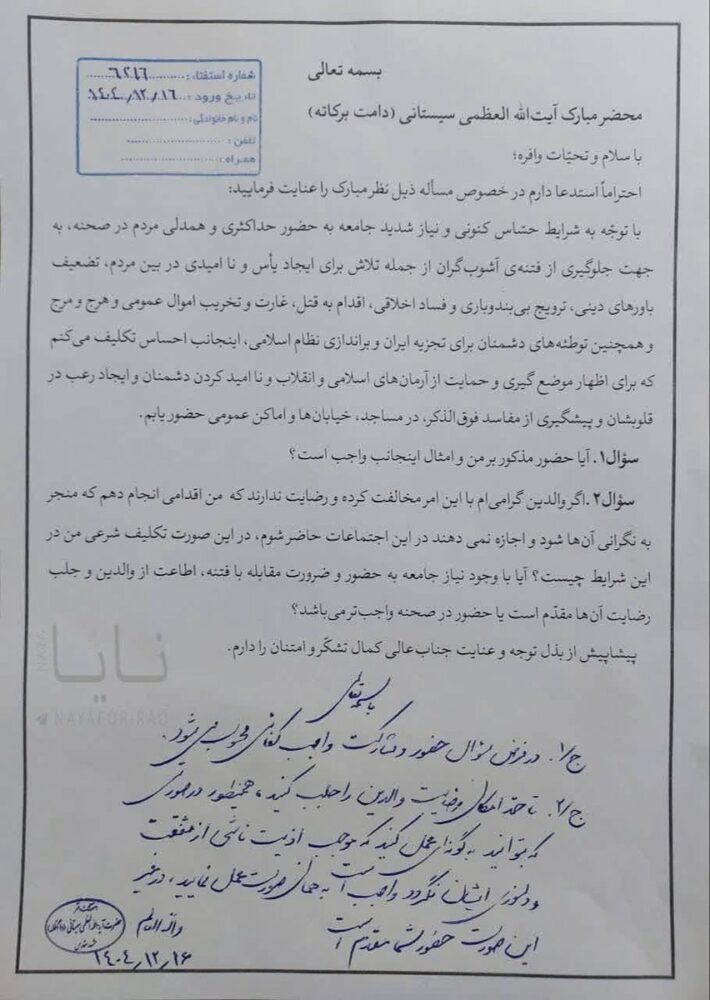 بسمه تعالی
شماره استفتاء: ۶۲۱۶
تاریخ ورود: ۱۴۰۴/۱۲/۱۶
نام و نام خانوادگی:
تلفن:
همراه:
محضر مبارک آیت‌الله العظمی سیستانی (دامت برکاته)
با سلام و تحیّات وافره؛
احتراماً استدعا دارم در خصوص مسأله ذیل نظر مبارک را عنایت فرمایید:
با توجّه به شرایط حسّاس کنونی و نیاز شدید جامعه به حضور حداکثری و همدلی مردم در صحنه، به
جهت جلوگیری از فتنه‌ی آشوب‌گران از جمله تلاش برای ایجاد یأس و نا امیدی در بین مردم، تضعیف
باورهای دینی، ترویج بی‌بندوباری و فساد اخلاقی، اقدام به قتل، غارت و تخریب اموال عمومی و هرج و مرج
و همچنین توطئه‌های دشمنان برای تجزیه ایران و براندازی نظام اسلامی، اینجانب احساس تکلیف می‌کنم
که برای اظهار موضع گیری و حمایت از آرمان‌های اسلامی و انقلاب و نا امید کردن دشمنان و ایجاد رعب در
قلوبشان و پیشگیری از مفاسد فوق‌الذکر، در مساجد، خیابان‌ها و اماکن عمومی حضور یابم.
سؤال۱. آیا حضور مذکور بر من و امثال اینجانب واجب است؟
سؤال۲. اگر والدین گرامی‌ام با این امر مخالفت کرده و رضایت ندارند که من اقدامی انجام دهم که منجر
به نگرانی آن‌ها شود و اجازه نمی دهند در این اجتماعات حاضر شوم، در این صورت تکلیف شرعی من در
این شرایط چیست؟ آیا با وجود نیاز جامعه به حضور و ضرورت مقابله با فتنه، اطاعت از والدین و جلب
رضایت آن‌ها مقدّم است یا حضور در صحنه واجب‌تر می‌باشد؟
پیشاپیش از بذل توجه و عنایت جناب‌عالی کمال تشکّر و امتنان را دارم.
نایا
NAYA
NAYAFORIRAQ
باسمه تعالی
ج۱/ در فرض سؤال حضور و مشارکت واجب کفائی محسوب می شود.
ج۲/ تا حدّ امکان رضایت والدین را جلب کنید، همینطور در صورتی
که بتوانید به گونه‌ای عمل کنید که موجب اذیت ناشی از شفقت
و دلسوزی ایشان نگردد واجب است به همان صورت عمل نمایید، در غیر
این صورت حضور شما مقدم است
والله العالم
۱۴۰۴/۱۲/۱۶